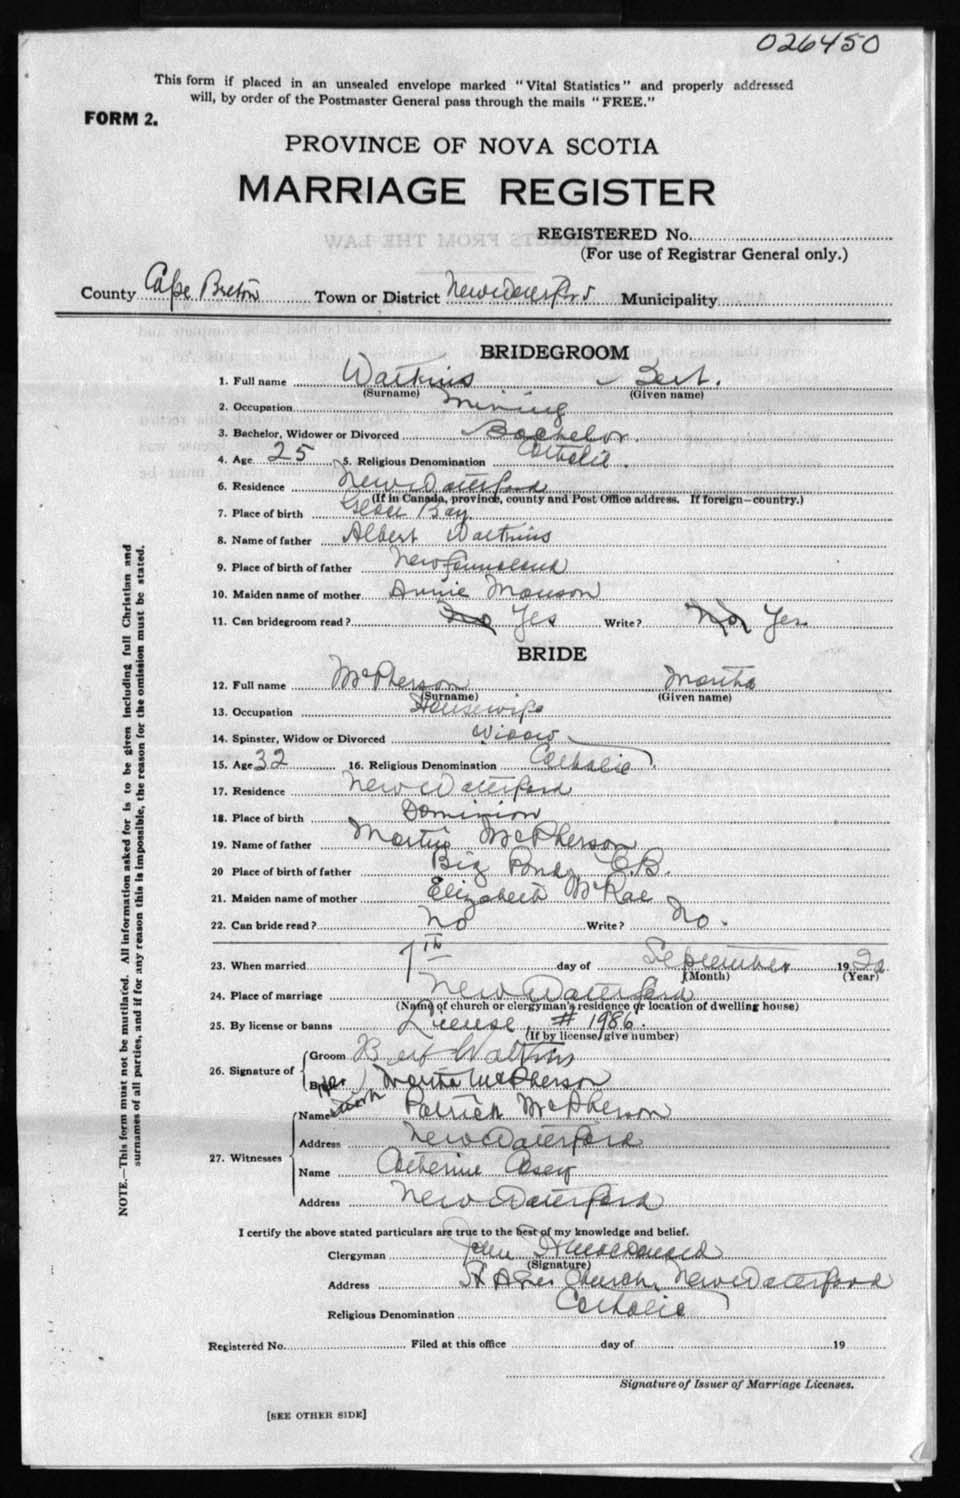 026450
This form if placed in an unsealed envelope marked "Vital Statistics" and properly addressed
will, by order of the Postmaster General pass through the mails "FREE."
FORM 2.
PROVINCE OF NOVA SCOTIA
MARRIAGE REGISTER
REGISTERED No.
(For use of Registrar General only.)
County Cape Breton Town or District New Waterford Municipality
BRIDEGROOM
1. Full name Watkins Bert.
(Surname) (Given name)
2. Occupation Mining
3. Bachelor, Widower or Divorced Bachelor.
4. Age 25 5. Religious Denomination Catholic.
6. Residence New Waterford
(If in Canada, province, county and Post Office address. If foreign—country.)
7. Place of birth Glace Bay
8. Name of father Albert Watkins
9. Place of birth of father Newfoundland
10. Maiden name of mother Annie Manson
11. Can bridegroom read? No Yes Write? No Yes
BRIDE
12. Full name McPherson Martha
(Surname) (Given name)
13. Occupation Housewife
14. Spinster, Widow or Divorced Widow
15. Age 32 16. Religious Denomination Catholic
17. Residence New Waterford
18. Place of birth Dominion
19. Name of father Martin McPherson
20 Place of birth of father Big Pond, C.B.
21. Maiden name of mother Elizabeth McRae
22. Can bride read? No Write? No.
23. When married 7TH day of September 1920
(Month) (Year)
24. Place of marriage New Waterford
(Name of church or clergyman's residence or location of dwelling house)
25. By license or banns License, # 1986.
(If by license, give number)
26. Signature of Groom Bert Watkins
Bride her Martha McPherson
mark
27. Witnesses Name Patrick McPherson
Address New Waterford
Name Catherine Casey
Address New Waterford
I certify the above stated particulars are true to the best of my knowledge and belief.
Clergyman John
(Signature)
Address St Agnes Church, New Waterford
Religious Denomination Catholic
Registered No. Filed at this office day of 19
Signature of Issuer of Marriage Licenses.
[SEE OTHER SIDE]
NOTE.—This form must not be mutilated. All information asked for is to be given including full Christian and
surnames of all parties, and if for any reason this is impossible, the reason for the omission must be stated.